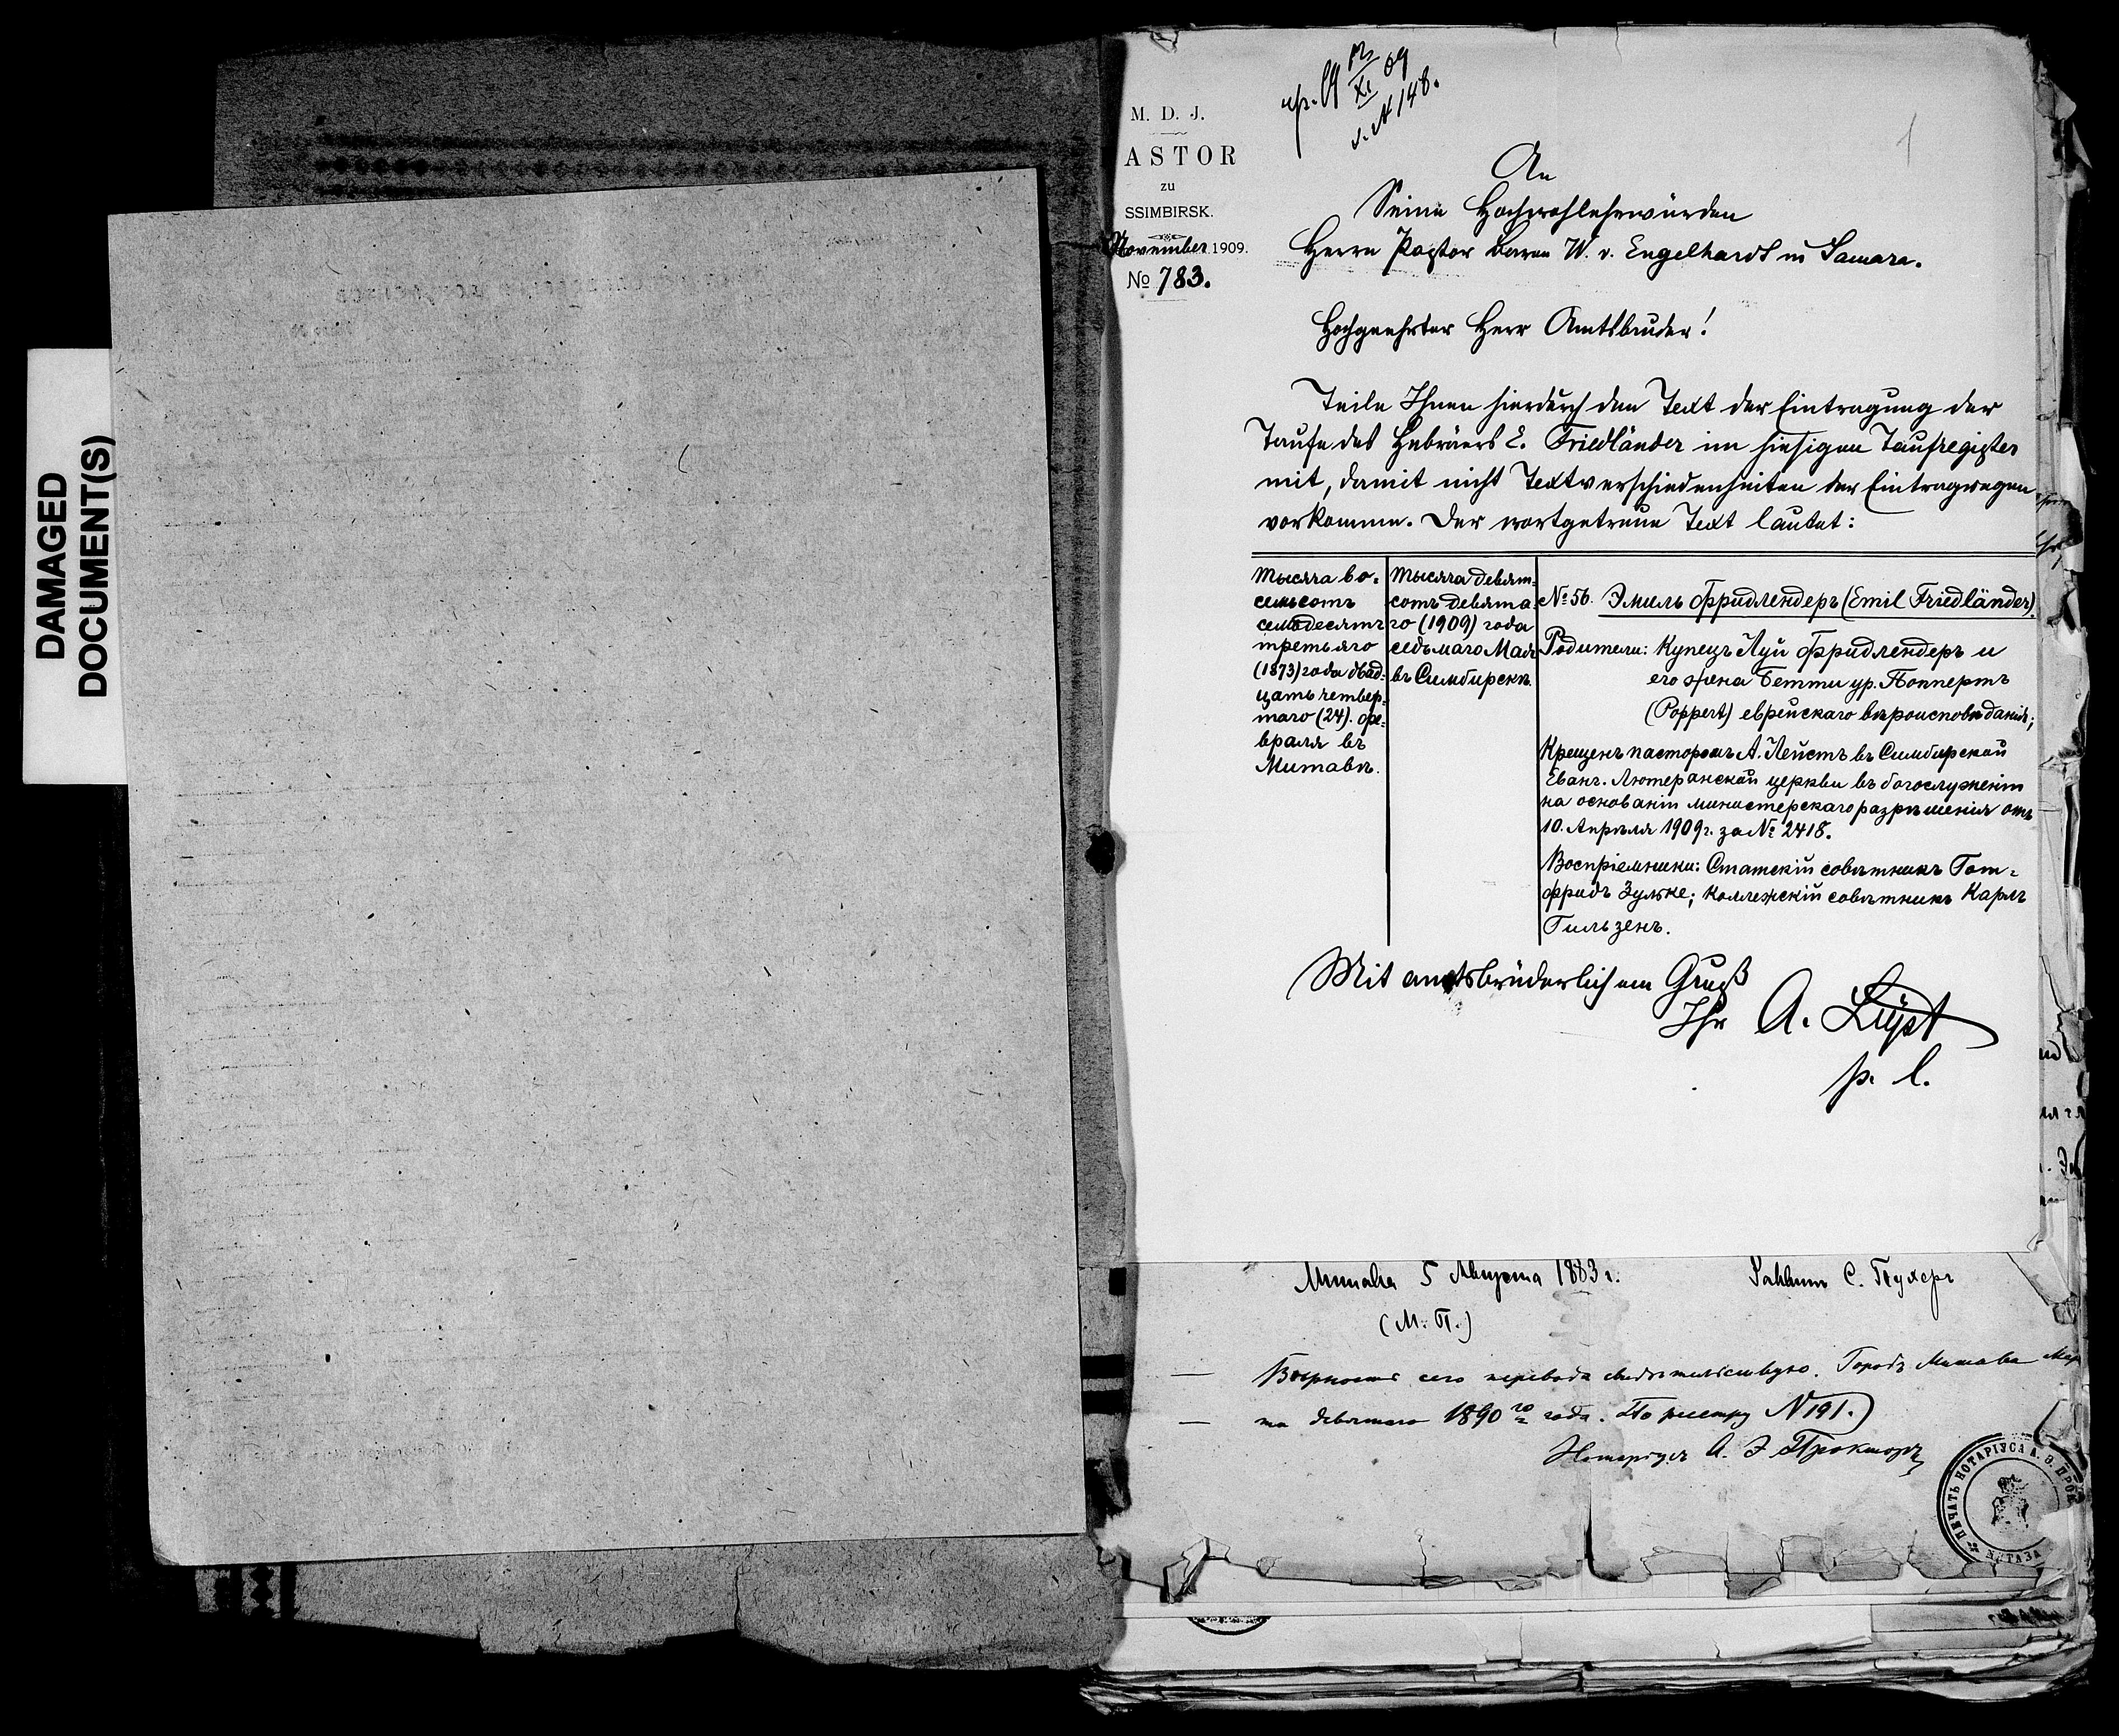 DAMAGED
DOCUMENT(S)
M. D. J.
ASTOR
zu
SSIMBIRSK.
November 1909.
№ 783.
09
148.
1
An
Seine Hochwohlehrwürden
Herrn Pastor Baron W. v. Engelhardt in Samara.
Hochgeehrter Herr Amtsbruder!
Teile Ihnen hierdurch den Text der Eintragung der
Taufe des Hebräers E. Friedländer im hiesigen Taufregister
mit, damit nicht Textverschiedenheiten der Eintragungen
vorkommen. Der wortgetreue Text lautet:
Тысяча во-
семьсотъ
семьдесятъ
третьяго
(1873) года двад-
цать четвер-
таго (24). фе-
враля въ
Митавѣ.
Тысяча девят-
сотъ девята-
го (1909) года
седьмаго Мая
въ Симбирскѣ.
№ 56. Эмиль Фридлендеръ (Emil Friedländer).
Родители: Купецъ Луи Фридлендеръ и
его жена Бетти ур. Поппертъ
(Poppert) еврейскаго вѣроисповѣданія;
Крещенъ пасторомъ А. Лейстъ въ Симбирской
Еванг. Лютеранской церкви въ богослуженіи
на основаніи министерскаго разрѣшенія отъ
10. Апрѣля 1909 г. за № 2418.
Воспріемники: Статскій совѣтникъ Гот-
фридъ Зульке; коллежскій совѣтникъ Карлъ
Гильзенъ.
Mit amtsbrüderlichem Gruß
Ihr A. Leyst
p. l.
Митава 5 Августа 1883 г. Раввинъ С. Пухеръ
(М. П.)
Вѣрность сего перевода свидѣтельствую. Городъ Митава Мар
та девятаго 1890 го года. По реестру № 191.
Нотаріусъ А. Э. Прокторъ
ПЕЧАТЬ НОТАРІУСА А. Э. ПРОК
МИТАВА